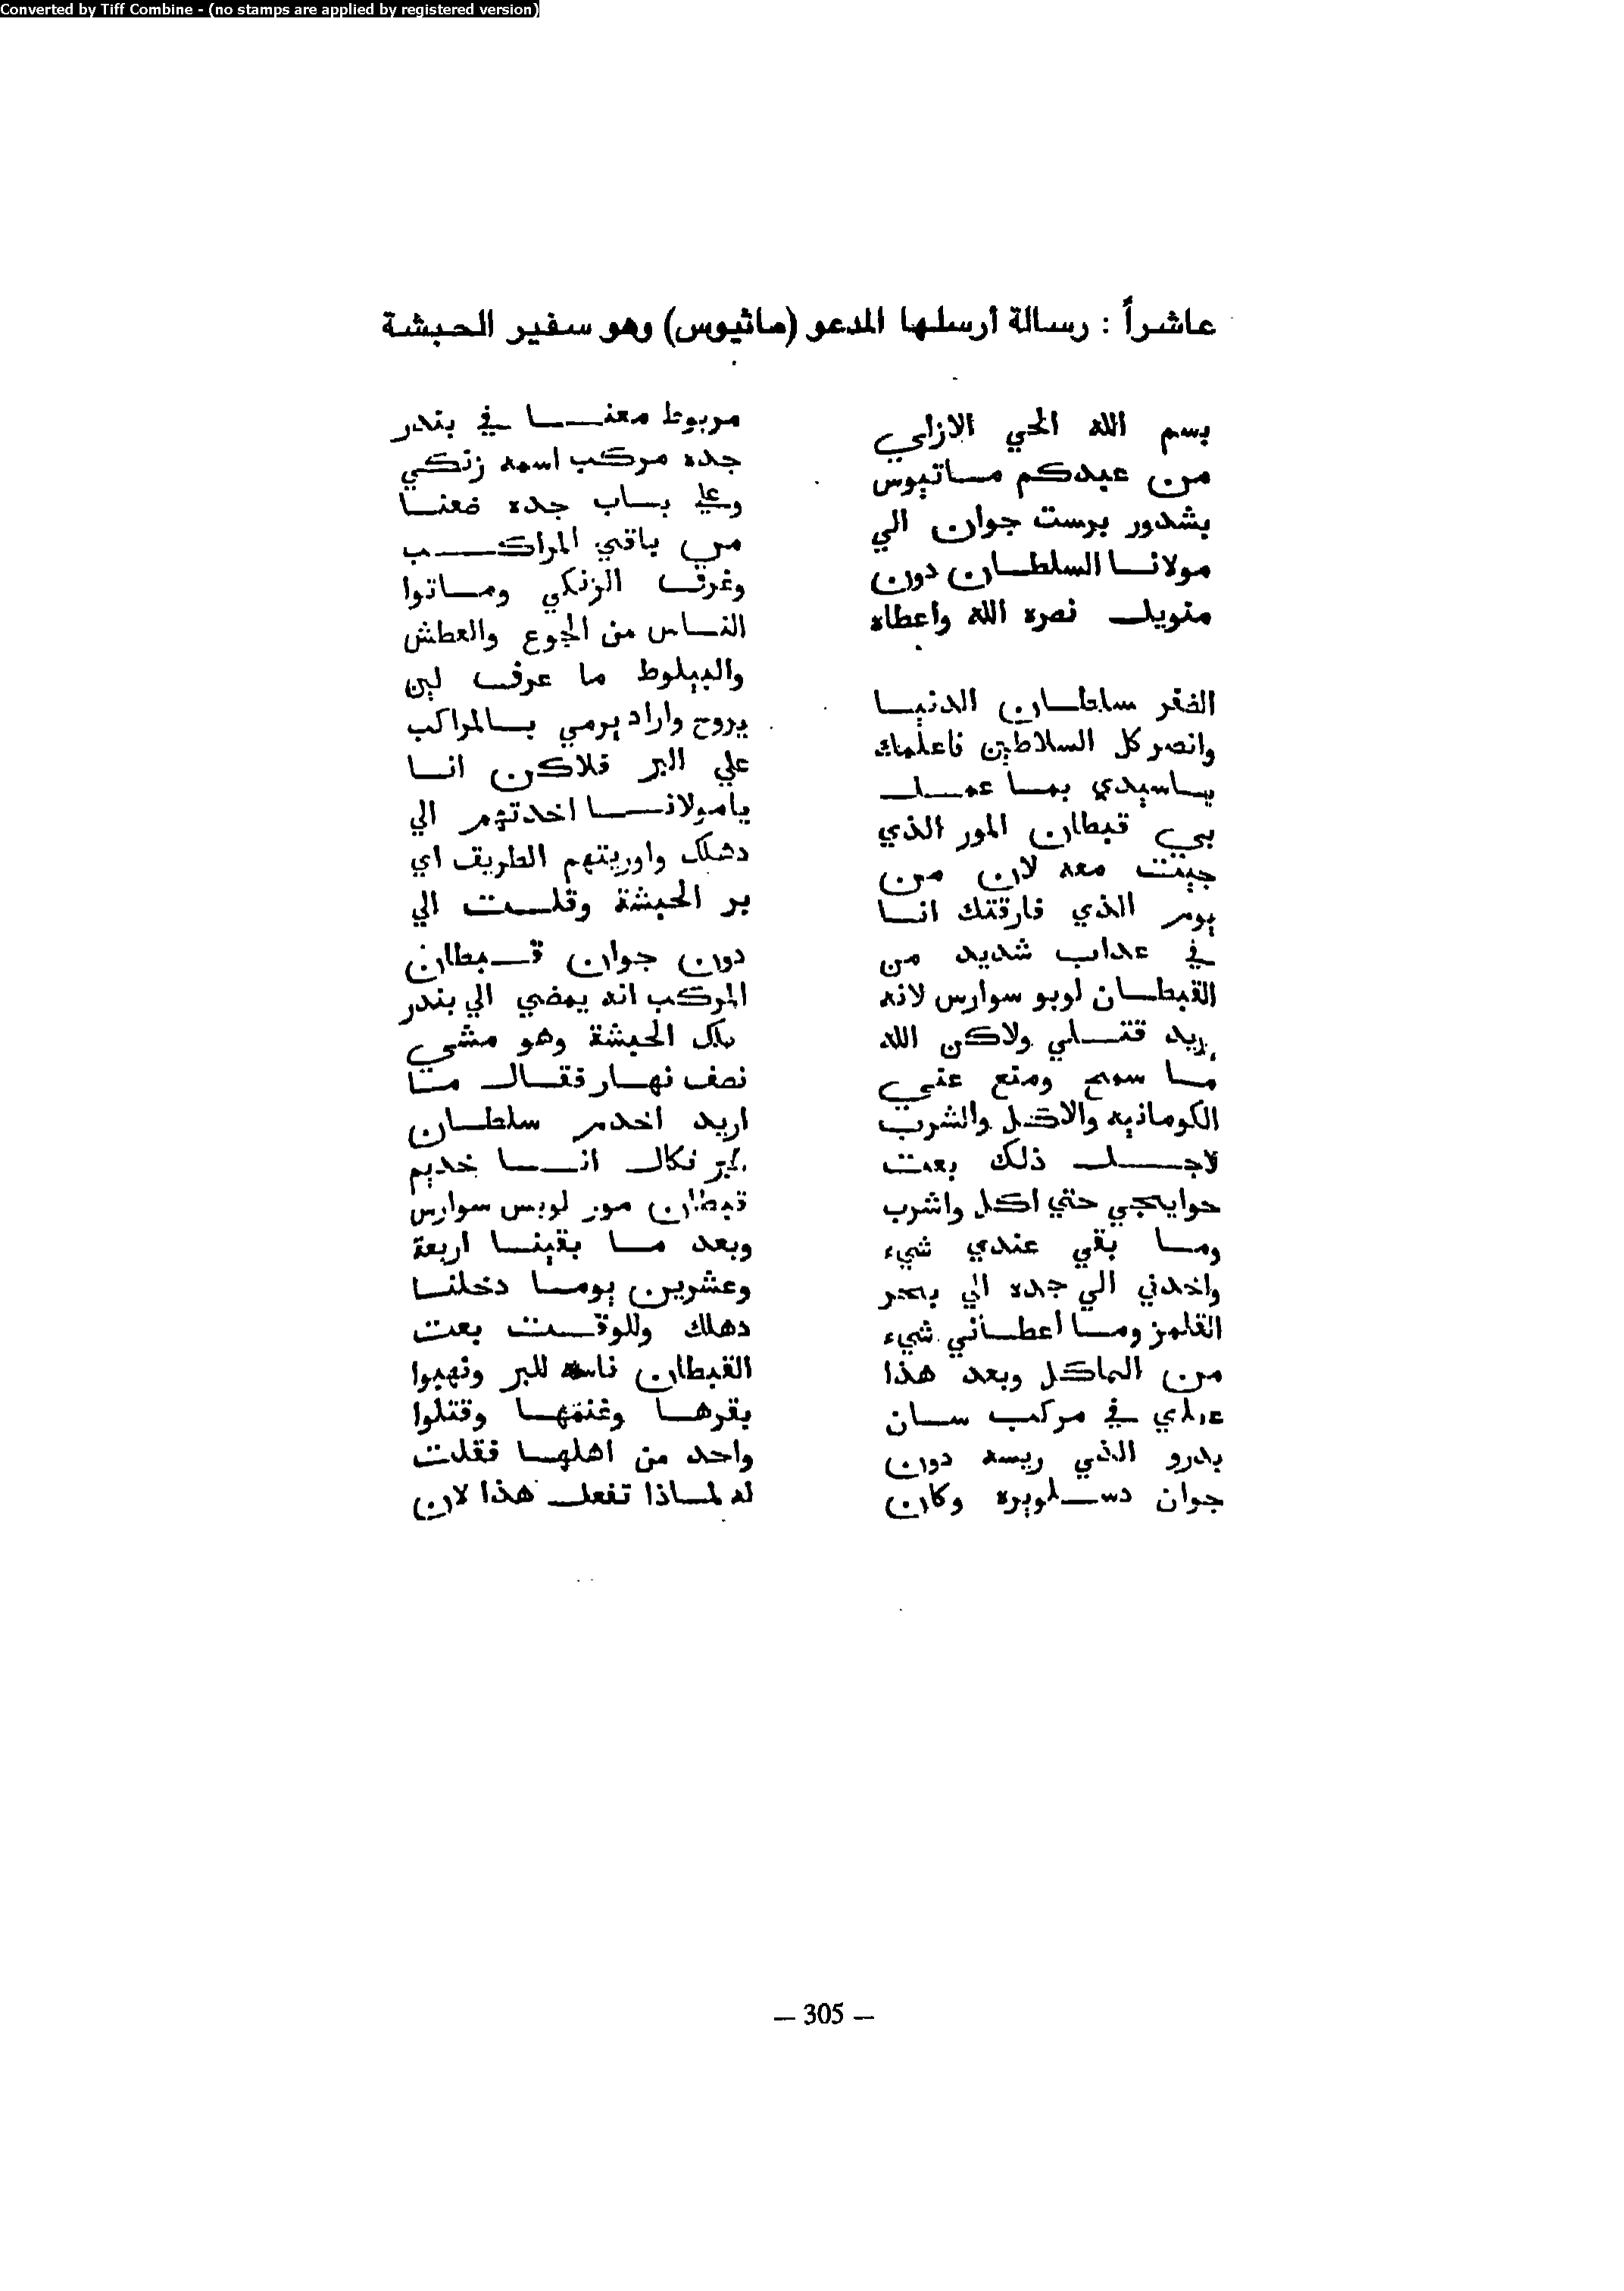 Converted by Tiff Combine - (no stamps are applied by registered version)
عاشراً : رسالة أرسلها المدعو (ماثيوس) وهو سفير الحبشة
بسم الله الحي الازلي
من عبدكم مساتيوس
بشدور برست جوان الي
مولانا السلطان دون
منويل نصره الله واعطاه
الفقر سلطان الدنيا
وانصر كل السلاطين فاعلمك
ياسيدي بما عمل
بي قبطان المور الذي
جيت معه لان من
يوم الذي فارقتك انا
في عداب شديد من
القبطان لوبو سوارس لانه
يريد قتلي ولاكن الله
ما سمح ومنع عني
الكومانيه والاكل والشرب
لاجل ذلك بعت
حوايجي حتي اكل واشرب
وما بقي عندي شيء
واخدني الي جده الي بحر
القلمز وما أعطاني شيء
من الماكل وبعد هذا
في مركب سان
بدرو الذي ريسه دون
جوان دسلويره وكان
مربوط معنا في بندر
جده مركب اسمه زنكي
وعلي باب جده ضعنا
من باقي المراكب
وغرق الزنكي وماتوا
الناس من الجوع والعطش
والبيلوط ما عرف لين
يروح واراد يرمي بالمراكب
علي البر فلاكن انا
يامولانا اخدتهم الي
دهلك واوريتهم الطريق اي
بر الحبشة وقلت الي
دون جوان قبطان
المركب انه يمضي الي بندر
بلك الحبشة وهو مشي
نصف نهار فقال ما
اريد اخدم سلطان
برتكال انا خديم
قبطان مور لوبس سوارس
وبعد ما بقينا اربعة
وعشرين يوما دخلنا
دهلك وللوقت بعت
القبطان ناسه للبر ونهبوا
بقرها وغنمها وقتلوا
واحد من اهلها فقلت
له لماذا تفعل هذا لان
— 305 —